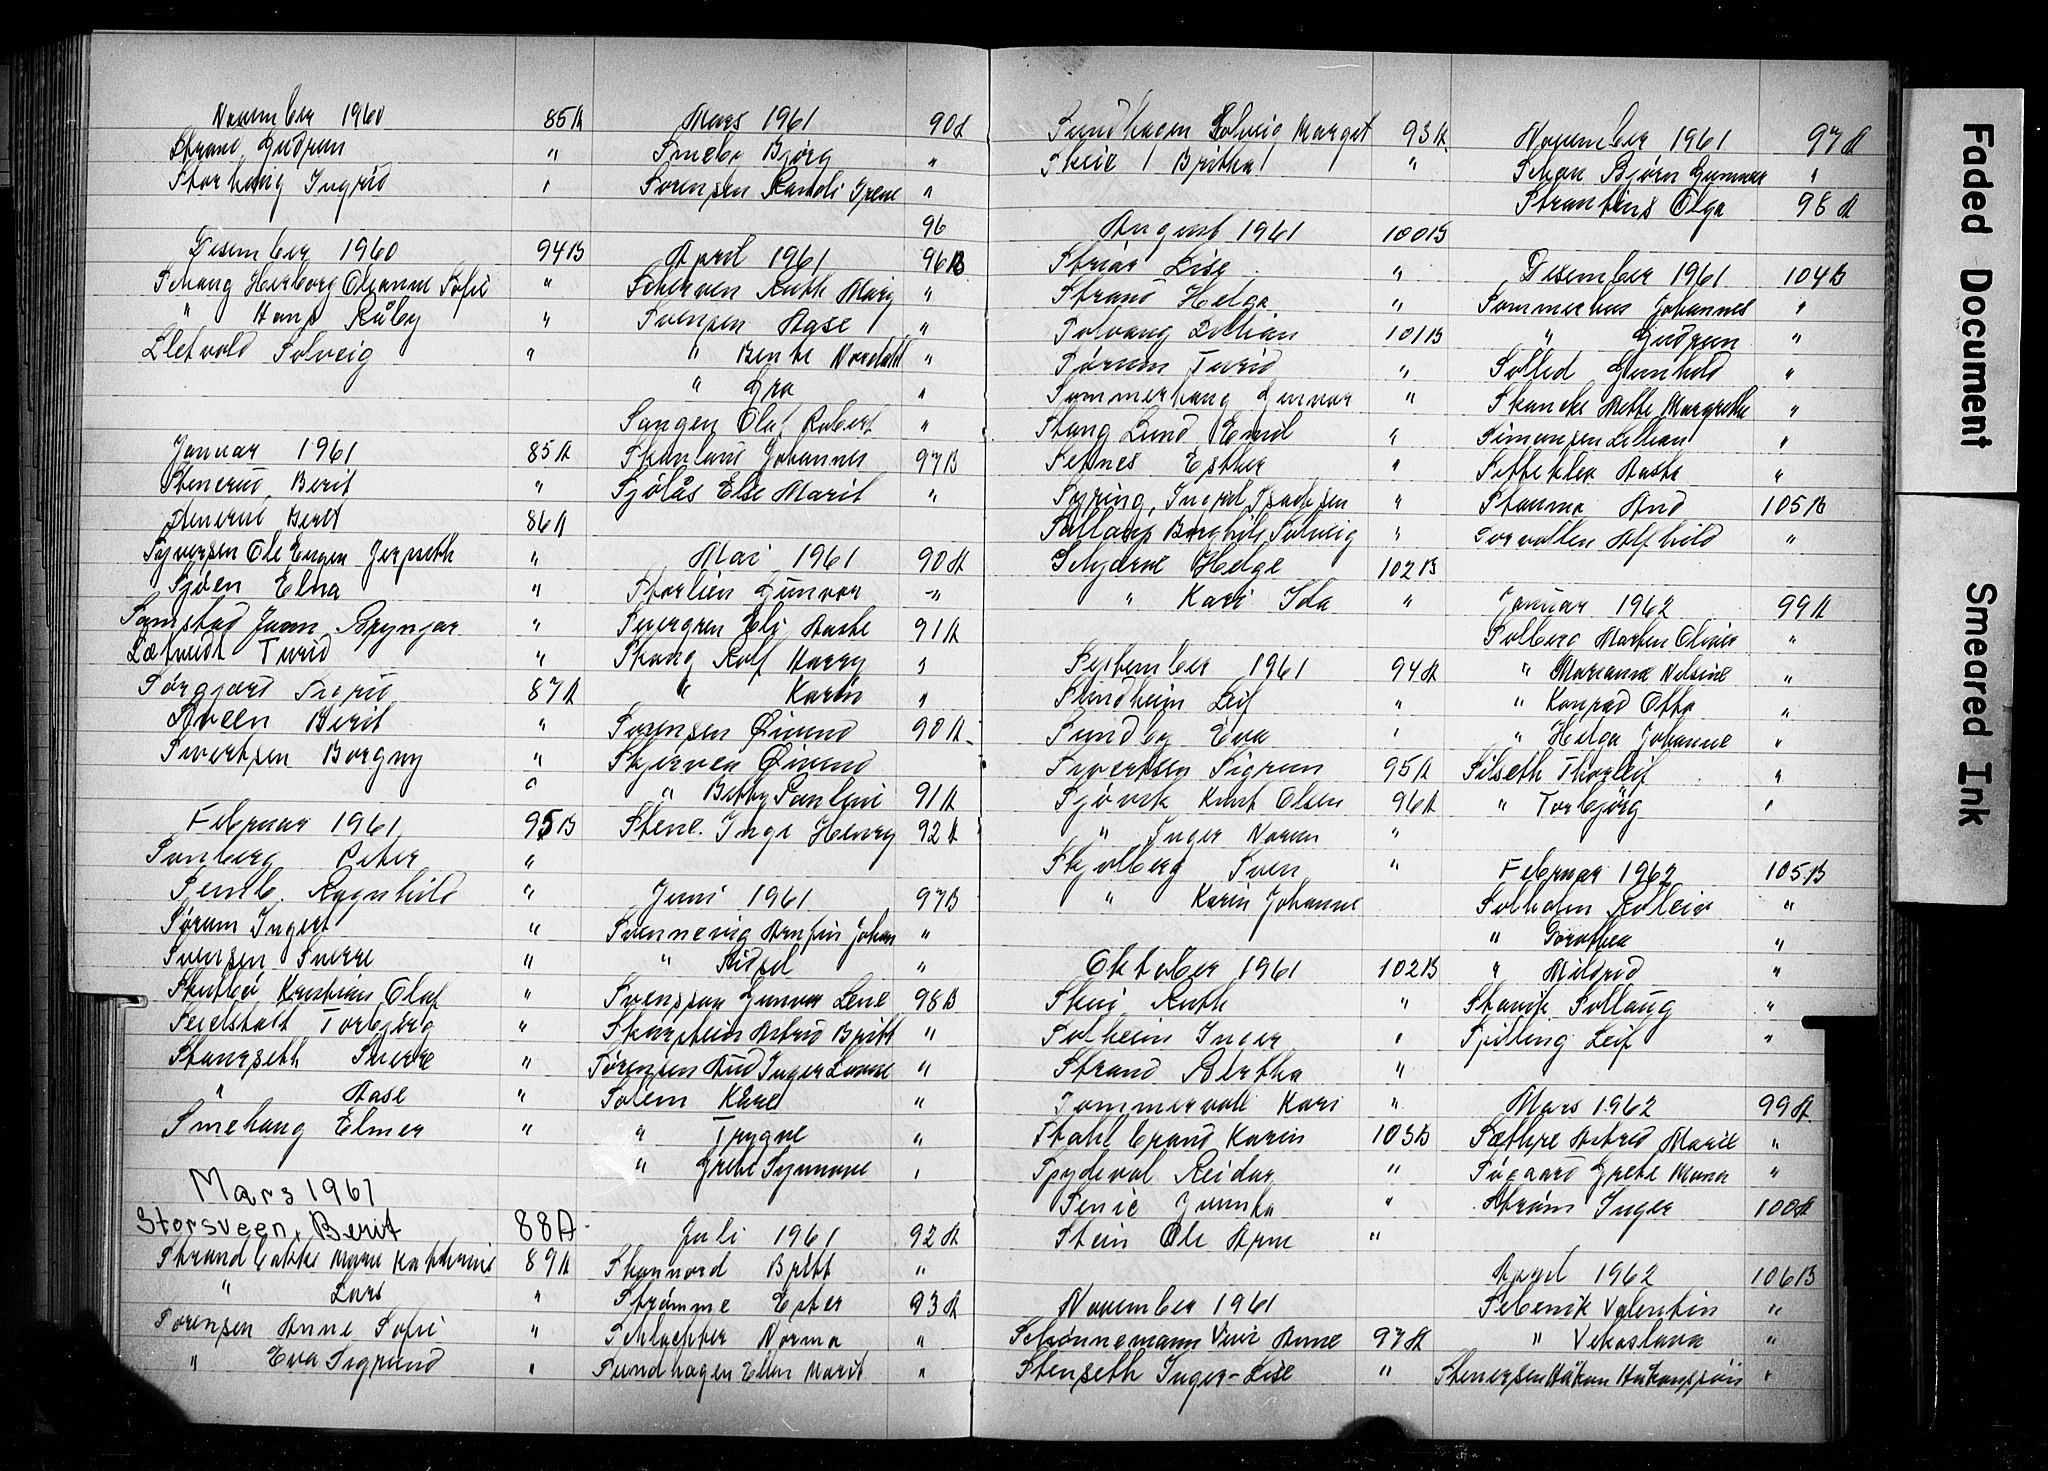 November 1960 85A
Strand Gudrun "
Storhaug Ingrid "
Desember 1960 94B
Schang Herborg Oleanne Sofie "
" Hans Råby "
Sletvold Solveig "
Januar 1961 85A
Stenerud, Berit "
Stenerud Berit 86A
Syversen Ole Eugen Jerpseth "
Sjøen Elna "
Samstad Gunn Bryngar "
Sætveidt Turid "
Sørgjerd Sigrid 87A
Sveen Berit "
Sivertsen Borgny "
"
Februar 1961 95B
Sunberg Peter "
Semb, Ragnhild "
Sørum Ingert "
Svensen Sverre "
Skutbø Kristian Olaf "
Segelstad Torbjørg "
Stangseth Sverre "
" Aase "
Smehaug Elmer "
Mars 1961
Storsveen, Berit 88A
Strand Cakki Marie Kathrine 89A
" Lars "
Sørensen Anne Sofie "
" Eva Sigrund "
Mars 1961 90A
Smebo Bjørg "
Sørensen Randi Irene "
96
April 1961 96B
Scherven Ruth Mary "
Svensen Aase "
" Bente Nordahl "
" Gro "
Sangen Olaf Robert "
Skanlund Johannes 97B
Sjølås Else Marit "
Mai 1961 90A
Storlien Gunvor "
Sivergren Eli Aaste 91A
Skaug Rolf Harry "
" Karin "
Sørensen Øivind 90A
Skjerven Øivind
" Betty Pauline 91A
Stene. Inge Henry 92A
Juni 1961 97B
Svennevig Arnfin Johan "
" Sidsel "
Svensson Gunvor Lene 98B
Skarstein Astrid Britt "
Sørensen Aud Inger Lovise "
Solem Kåre "
" Trygve "
" Grete Synnøve "
Juli 1961 92A
Skannord Britt "
Strømme Ester 93A
Schlachter Norma "
Sundhagen Ellen Marit "
Sundhagen Solveig Margot 93A
Skeie Britha "
August 1961 100B
Striar Lise "
Strand Helga "
Solvang Lillian 101B
Sørum Turid "
Sommerhaug Gunvor "
Stang Lund Emil "
Setnes Esther "
Syring, Ingrid Isachsen "
Sulland Borghild Solveig "
Schjerve Helge 102B
" Kari Ida "
September 1961 94A
Sundheim Leif "
Sundby Eva "
Syvertsen Sigrun 95A
Sjøvik Knut Olsen 96A
" Inger Noren "
Skjolberg Sven "
" Karin Johanne
Oktober 1961 102B
Skui Ruth "
Solheim Inger "
Strand Bertha "
Sommervoll Kari "
Stahl Brand Karin 103B
Spydevol Reidar "
Senie Gunda "
Stein Ole Arne "
November 1961
Schønnemann Vivi Anne 97A
Stenseth Inger-Lise "
November 1961 97A
Schou Bjørn Gunnar "
Strantins Olga 98A
Desember 1961 104B
Sommerhus Johannes "
" Gudrun "
Sollid Gunhild "
Skancke Mette Margrethe "
Simonsen Lillian "
Sitteklev Aasta "
Stamma And 105B
Sorvollen Alfhild "
Januar 1962 99A
Solberg Marten Oliver "
" Marianna Nelsine "
" Konrad Otto "
" Helga Johanne "
Silseth Thorleif "
" Torbjörg "
Februar 1962 105B
Solholm Rolleiv "
" Dorothea "
" Mildrid "
Stavik Sollaug "
Spilling Leif "
Mars 1962 99A
Sæthre Astrid Marie "
Søgaard Grete Mona "
Strøm Inger 100A
April 1962 106B
Sebenik Valentin "
" Vekoslava "
Stenersen Håkon Håkonssøn "
Faded Document
Smeared Ink